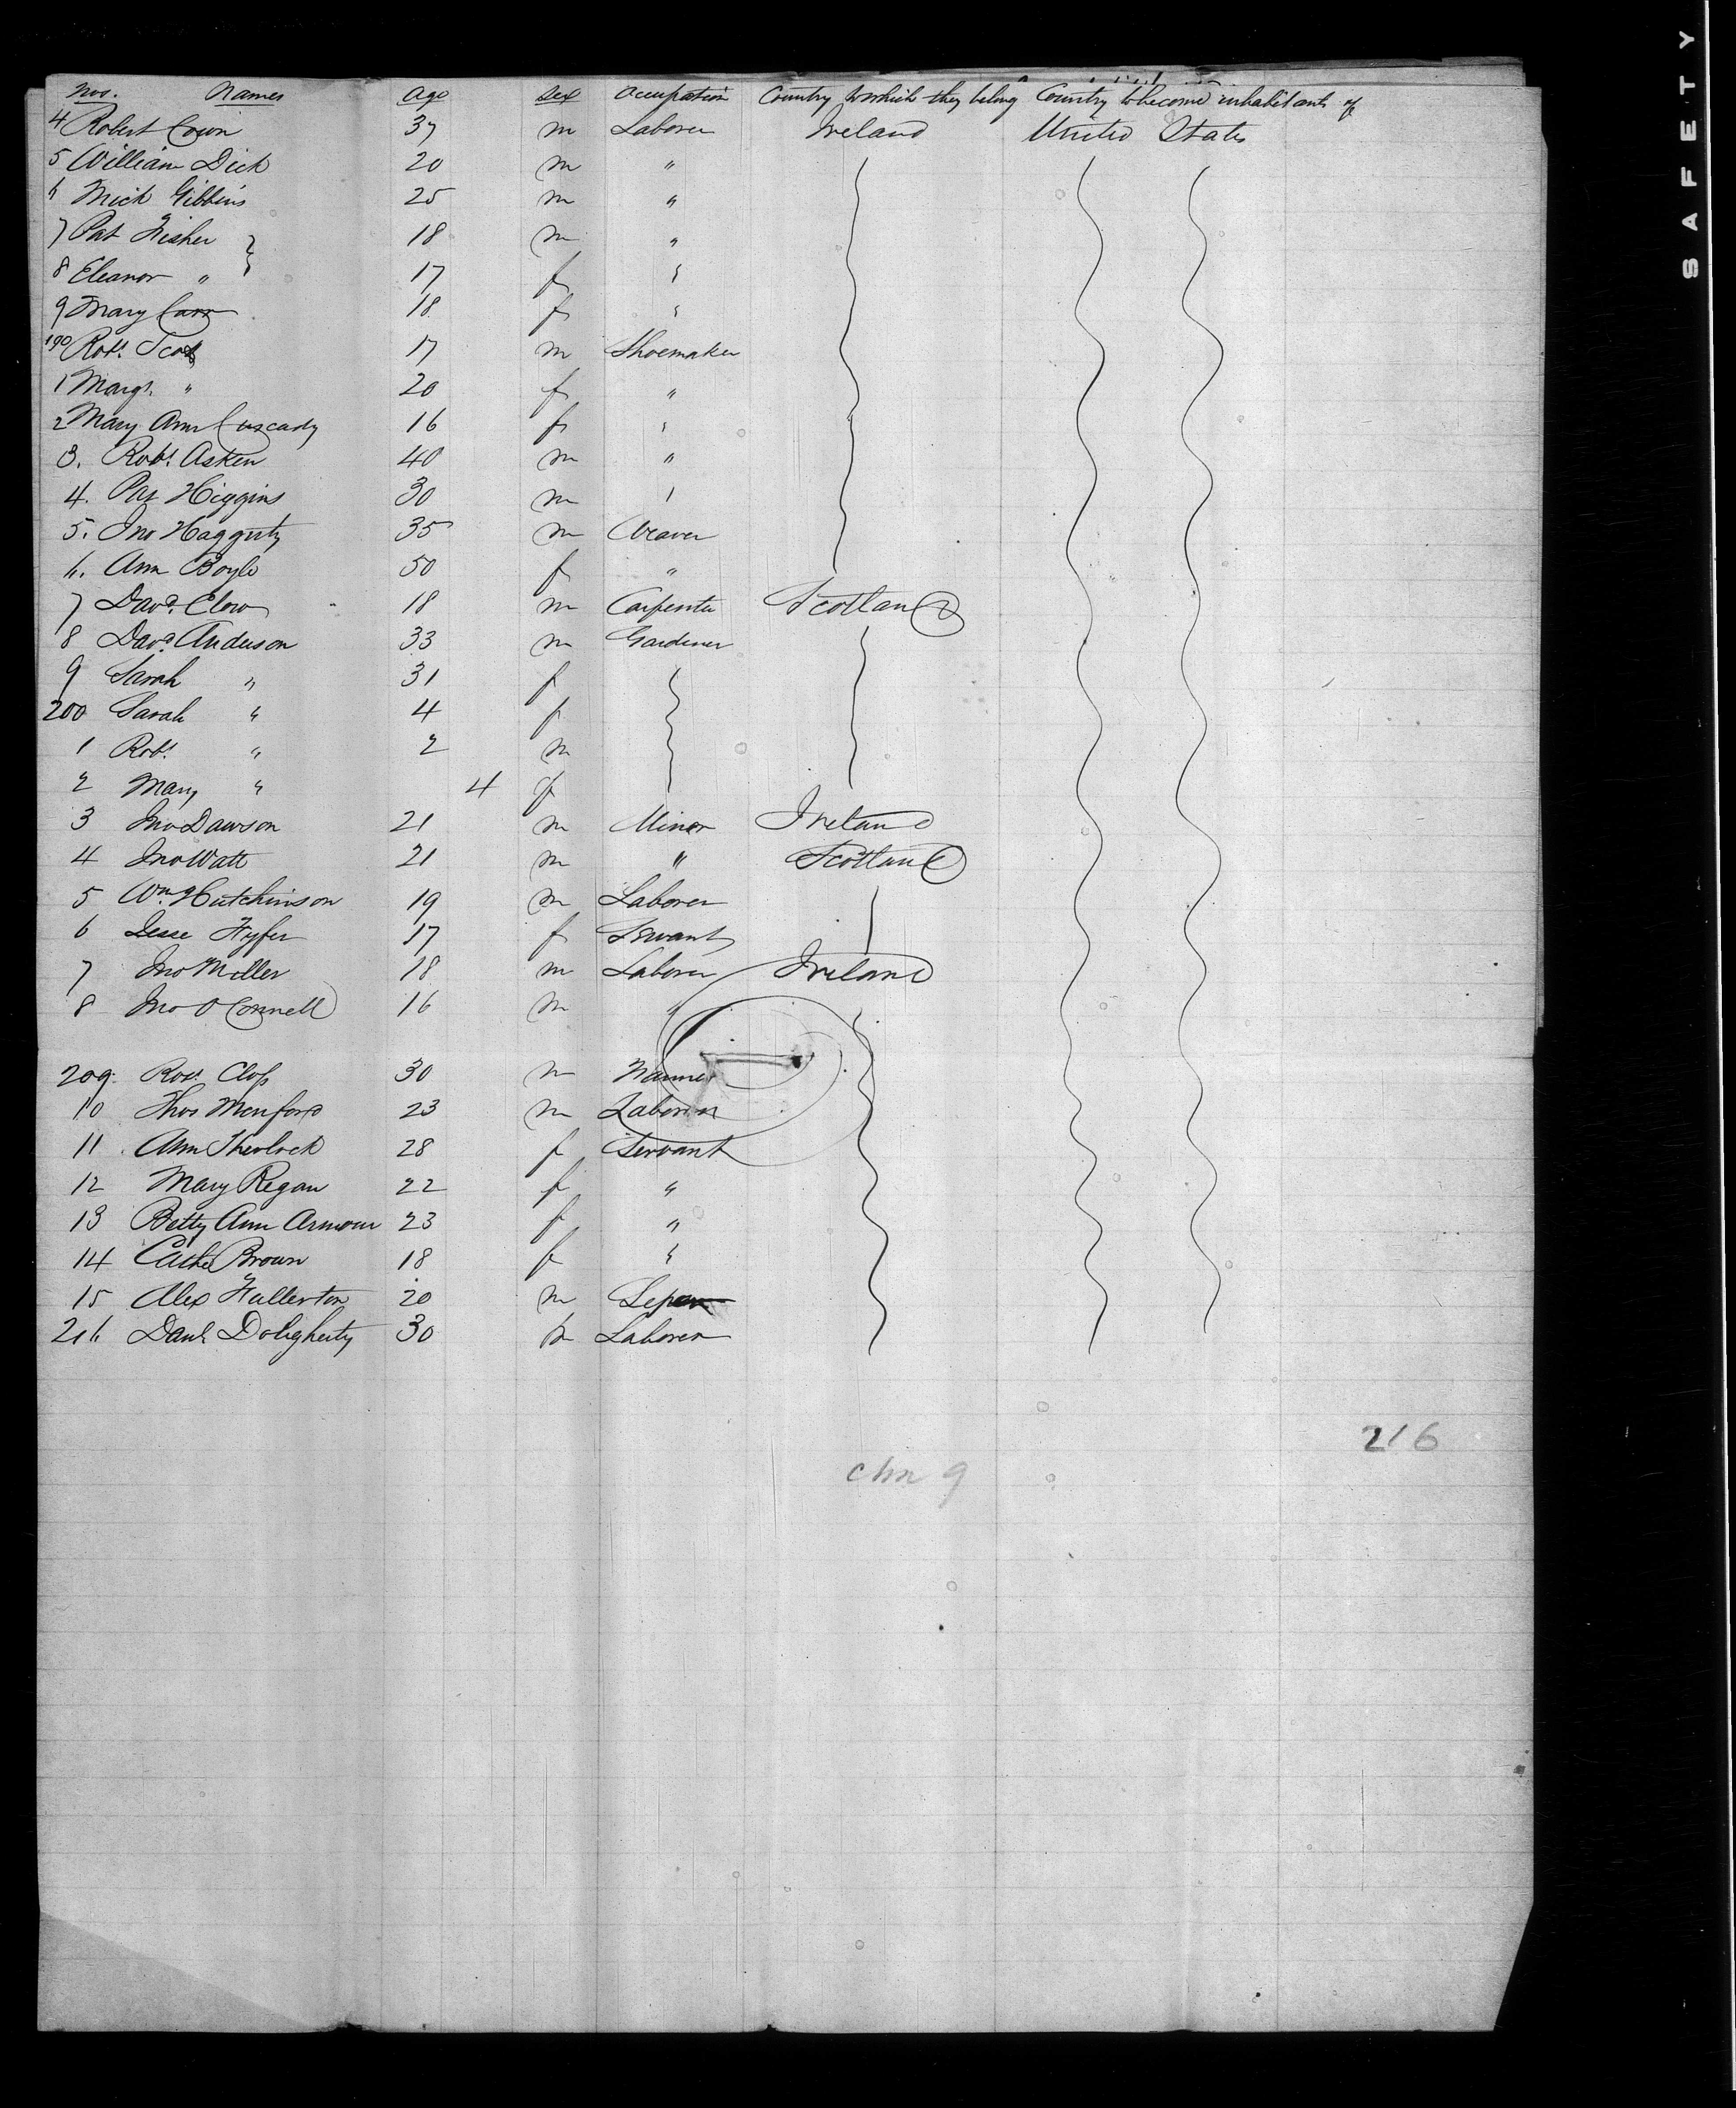 Nos. Names Age Sex Occupation Country to which they belong Country to become inhabitants of
4 Robert Cowin 37 m Laborer Ireland United States
5 William Dick 20 m "
6 Mick Gibbins 25 m "
7 Pat Fisher 18 m "
8 Eleanor " 17 f "
9 Mary Carr 18 f "
190 Robt. Scot 17 m Shoemaker
1 Margt. " 20 f "
2 Mary Ann Cuscady 16 f "
3. Robt. Asken 40 m "
4. Pat Higgins 30 m "
5. Jno Haggerty 35 m Weaver
6. Ann Boyle 50 f "
7 Davd. Clow 18 m Carpenter Scotland
8 Davd. Anderson 33 m Gardener
9 Sarah " 31 f
200 Sarah " 4 f
1 Robt. " 2 m
2 Mary " 4 f
3 Jno Dawson 21 m Miner Ireland
4 Jno Watt 21 m " Scotland
5 Wm. Hutchinson 19 m Laborer
6 Jesse Fyfer 17 f Servant
7 Jno Miller 18 m Laborer Ireland
8 Jno O Connell 16 m "
209. Robt. Closs 30 m
10 Thos Menford 23 m Laborer
11 Ann Sherlock 28 f Servant
12 Mary Regan 22 f "
13 Betty Ann Armour 23 f "
14 Cathe Brown 18 f "
15 Alex Fullerton 20 m
216 Danl. Doligherty 30 m Laborer
216
chn 9
SAFETY